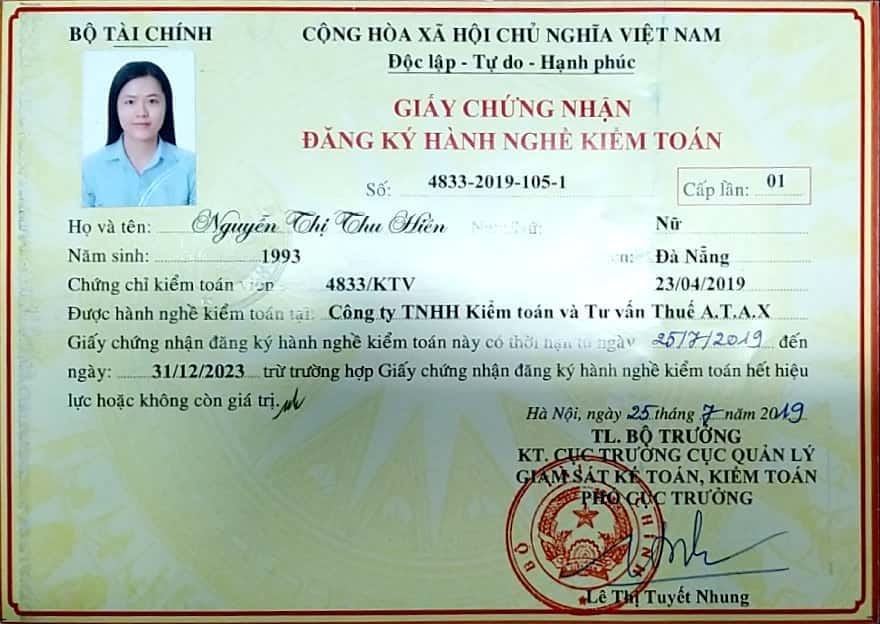 BỘ TÀI CHÍNH
CỘNG HÒA XÃ HỘI CHỦ NGHĨA VIỆT NAM
Độc lập - Tự do - Hạnh phúc
GIẤY CHỨNG NHẬN
ĐĂNG KÝ HÀNH NGHỀ KIỂM TOÁN
Số: 4833-2019-105-1
Cấp lần: 01
Họ và tên: Nguyễn Thị Thu Hiền Nữ
Năm sinh: 1993 Đà Nẵng
Chứng chỉ kiểm toán viên 4833/KTV 23/04/2019
Được hành nghề kiểm toán tại: Công ty TNHH Kiểm toán và Tư vấn Thuế A.T.A.X
Giấy chứng nhận đăng ký hành nghề kiểm toán này có thời hạn từ ngày 25/7/2019 đến
ngày: 31/12/2023 trừ trường hợp Giấy chứng nhận đăng ký hành nghề kiểm toán hết hiệu
lực hoặc không còn giá trị.
Hà Nội, ngày 25 tháng 7 năm 2019
TL. BỘ TRƯỞNG
KT. CỤC TRƯỞNG CỤC QUẢN LÝ
GIÁM SÁT KẾ TOÁN, KIỂM TOÁN
PHÓ CỤC TRƯỞNG
Lê Thị Tuyết Nhung